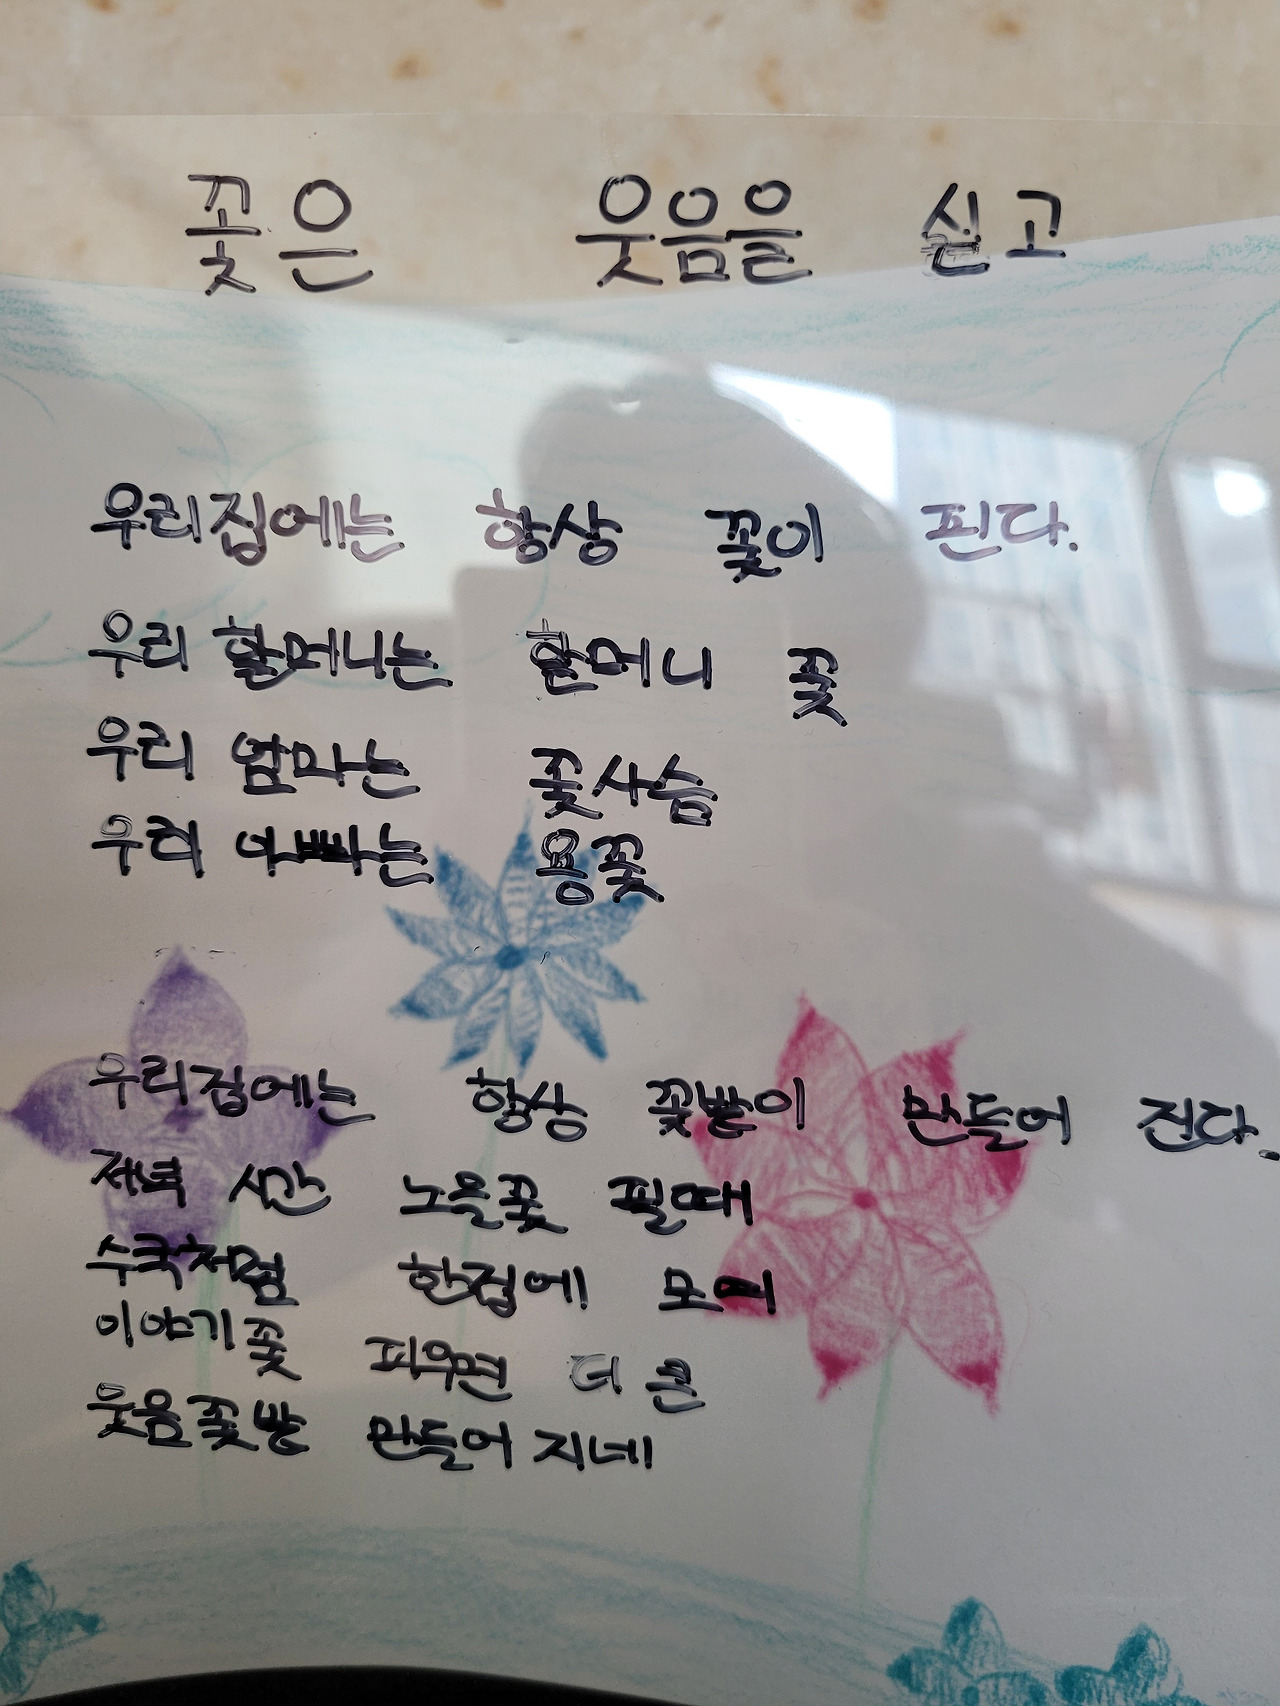 꽃은 웃음을 싣고
우리집에는 항상 꽃이 핀다.
우리 할머니는 할머니 꽃
우리 엄마는 꽃사슴
우리 아빠는 용꽃
우리집에는 항상 꽃밭이 만들어 진다.
저녁 시간 노을꽃 필때
수국처럼 한집에 모여
이야기꽃 피우면 더 큰
웃음꽃밭 만들어 지네